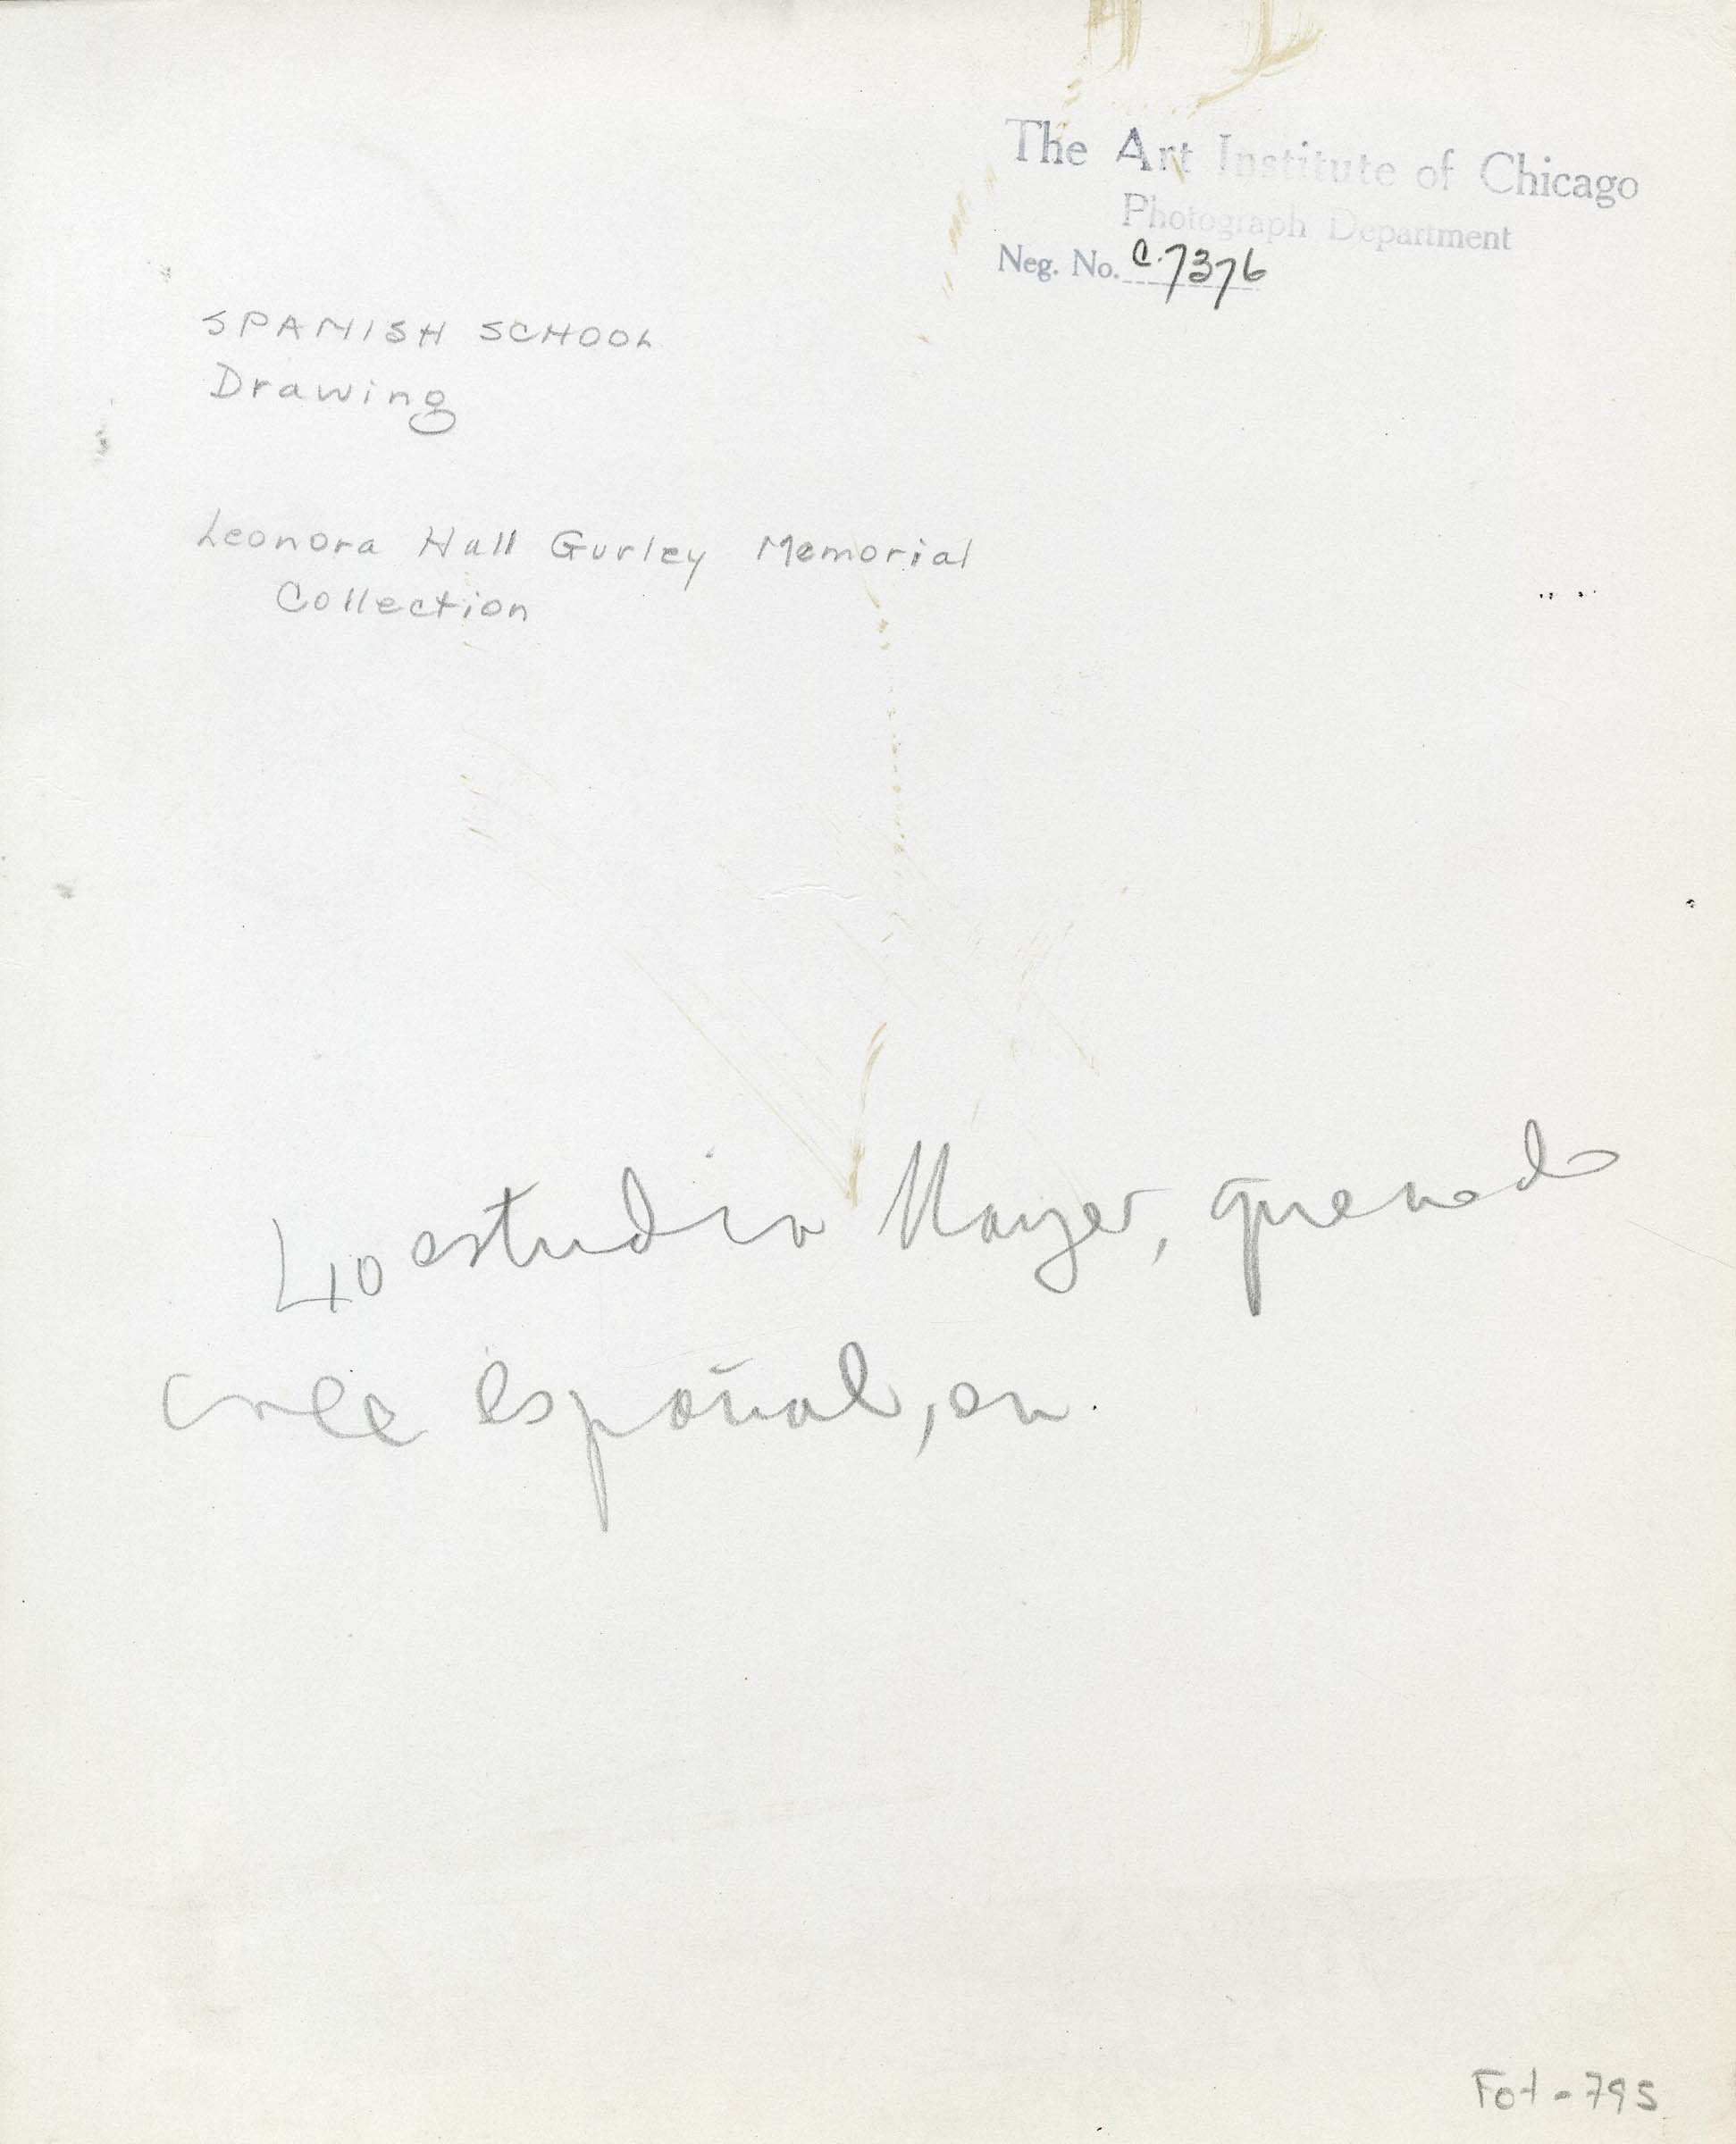 The Art Institute of Chicago
Photograph Department
Neg. No. C.7376
SPANISH SCHOOL
Drawing
Leonora Hall Gurley Memorial
Collection
Lo estudia Mayer, que no lo
cree español, en
Fot-795